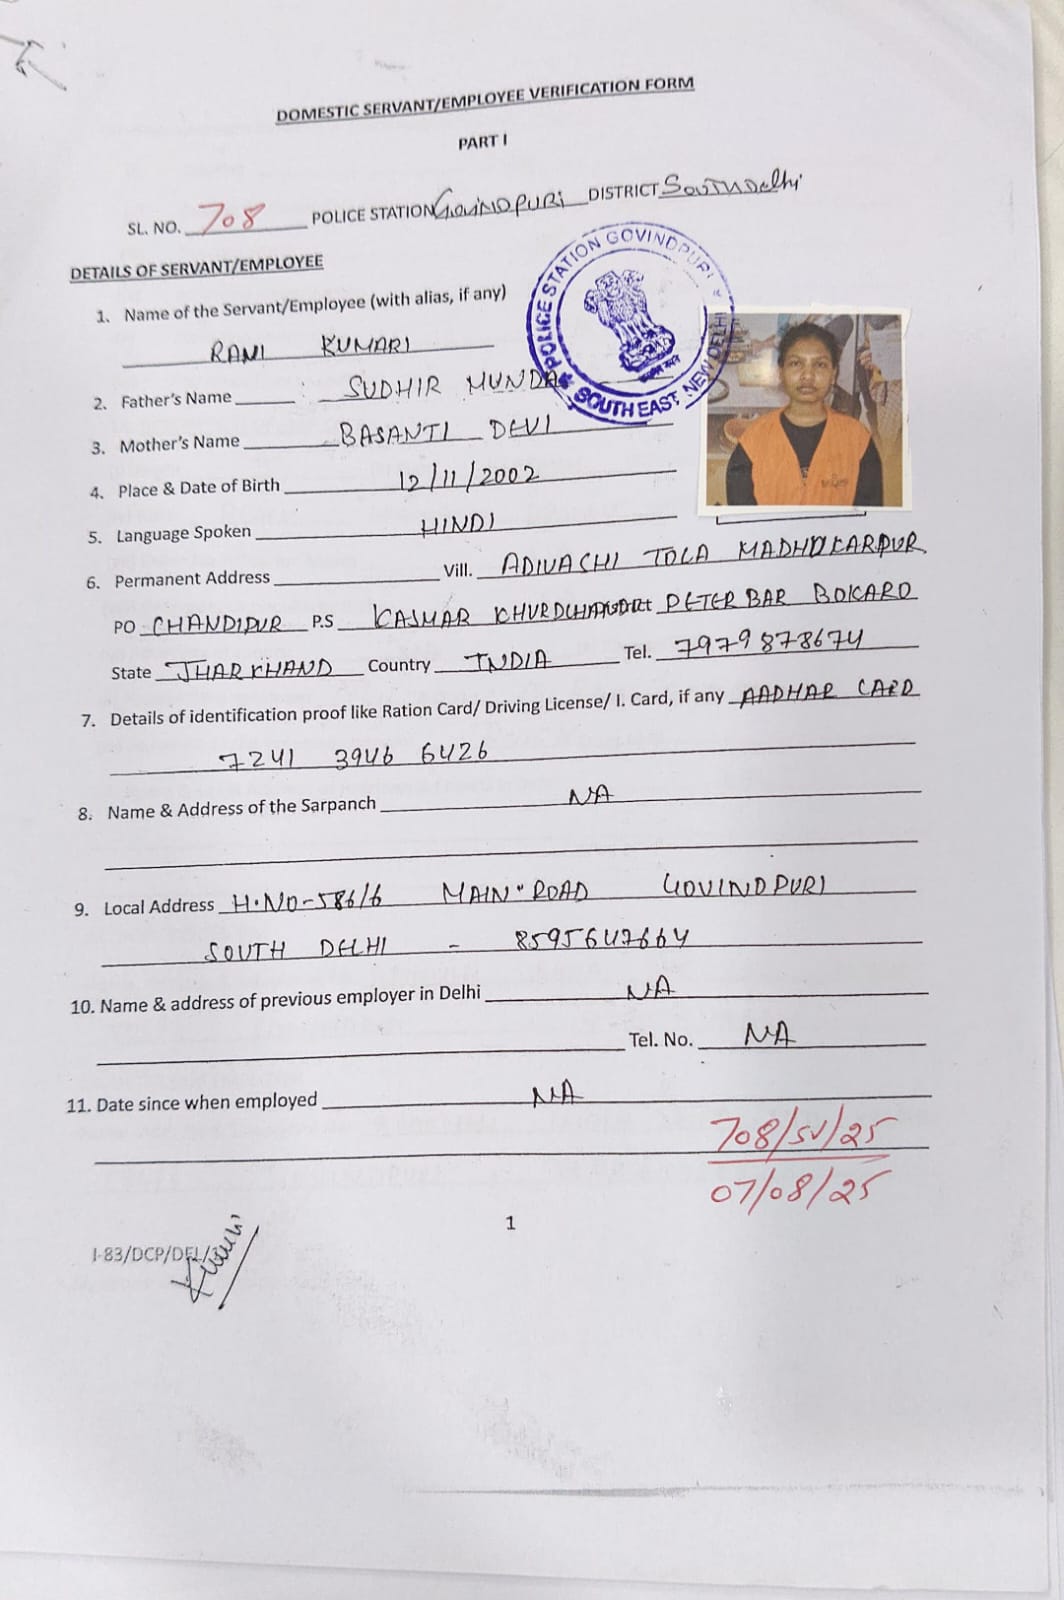 DOMESTIC SERVANT/EMPLOYEE VERIFICATION FORM
PART I
SL. NO. 708 POLICE STATION GOVINDPURI DISTRICT South Delhi
POLICE STATION GOVINDPURI
SOUTH EAST NEW DELHI
DETAILS OF SERVANT/EMPLOYEE
1. Name of the Servant/Employee (with alias, if any)
RANI KUMARI
2. Father's Name SUDHIR MUNDA
3. Mother's Name BASANTI DEVI
4. Place & Date of Birth 12/11/2002
5. Language Spoken HINDI
6. Permanent Address Vill. ADIVASHI TOLA MADHUKARPUR
PO CHANDIPUR P.S KASMAR PETERBAR BOKARO
State JHARKHAND Country INDIA Tel. 7979878674
7. Details of identification proof like Ration Card/ Driving License/ I. Card, if any AADHAR CARD
7241 3946 6426
8. Name & Address of the Sarpanch NA
9. Local Address H.NO-586/6 MAIN ROAD GOVINDPURI
SOUTH DELHI - 8595647664
10. Name & address of previous employer in Delhi NA
Tel. No. NA
11. Date since when employed NA
708/SV/25
07/08/25
1
I-83/DCP/DEL/